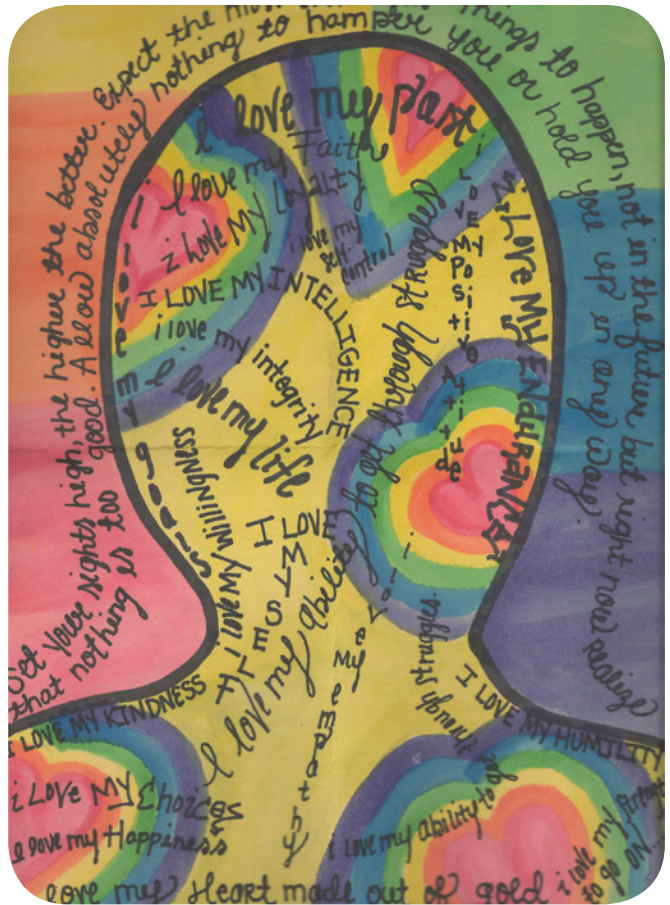 Set youre sights high, the higher the better. Expect the most things to happen, not in the future but right now Realize
that nothing is too good. Allow absolutely nothing to hamper you or hold you up in any way.
I love my past
I love my Faith
I love my Loyalty
i love my self control
i Love My
I LOVE MY INTELLIGENCE
i love my integrity
I love my life
i love my goals
i love My Willingness
I LOVE MYSELF
I love my ability to get through struggles
I LOVE MY Positive Attitude
i Love My ENDURANCE
i love My empathy
I LOVE MY KINDNESS
I LOVE MY HUMILITY
i Love My Choices
I love my Happiness
i love my ability to get through struggles.
i love my strength to go on
love my Heart made out of gold